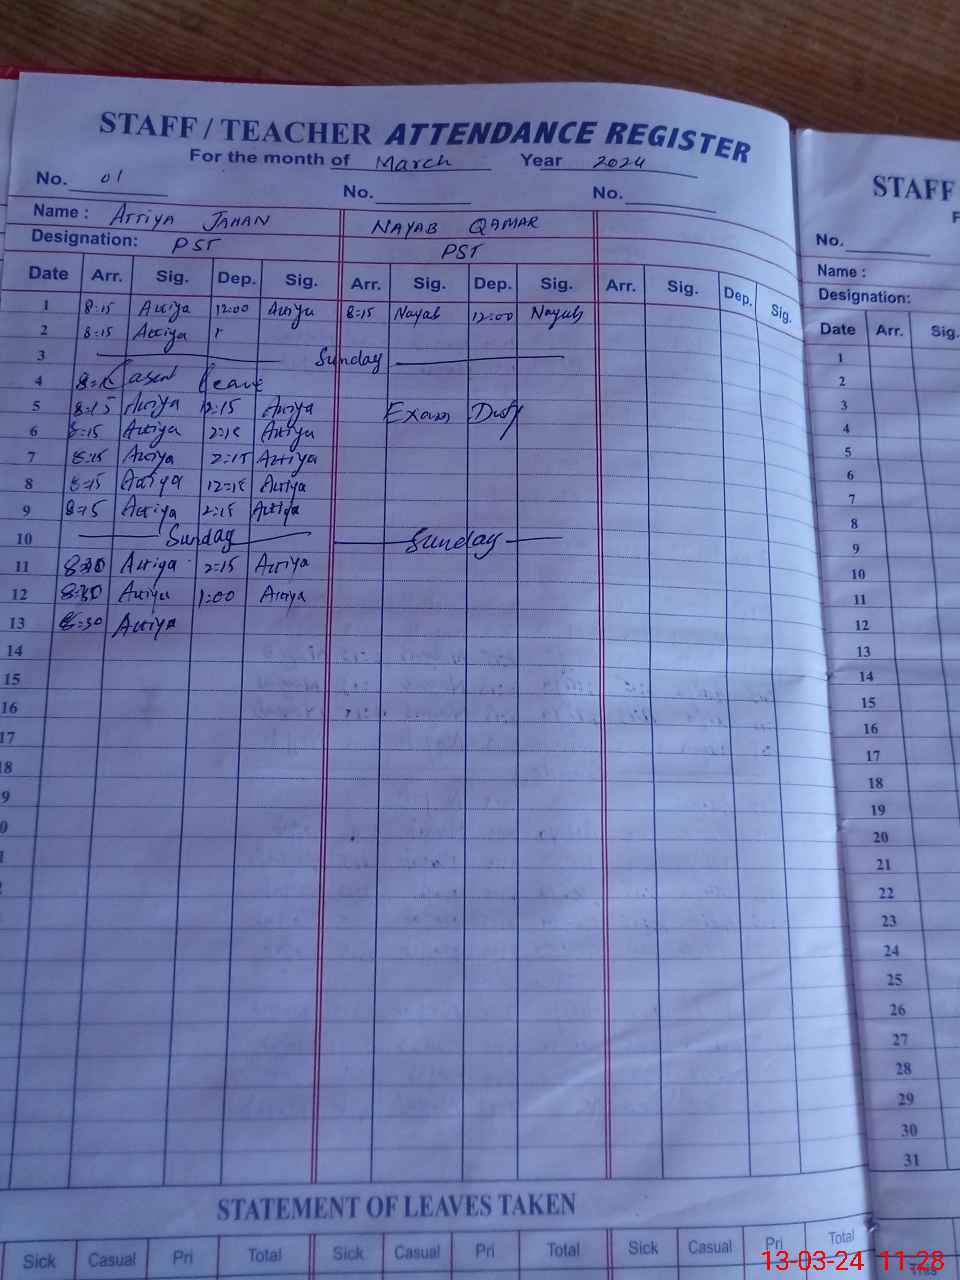 STAFF / TEACHER ATTENDANCE REGISTER
For the month of March Year 2024
No. 01 No. No.
Name : Attiya JAHAN NAYAB QAMAR
Designation: PST PST
Date Arr. Sig. Dep. Sig. Arr. Sig. Dep. Sig. Arr. Sig. Dep. Sig.
1 8:15 Attiya 12:00 Attiya 8:15 Nayab 12:00 Nayab
2 8:15 Attiya
3 Sunday
4 leave
5 8:15 Attiya 12:15 Attiya Exam Duty
6 8:15 Attiya 2:15 Attiya
7 8:15 Attiya 2:15 Attiya
8 8:15 Attiya 12:15 Attiya
9 8:15 Attiya 2:15 Attiya
10 Sunday Sunday
11 8:30 Attiya 2:15 Attiya
12 8:30 Attiya 1:00 Attiya
13 8:30 Attiya
14
15
16
17
18
9
0
1
STATEMENT OF LEAVES TAKEN
Sick Casual Pri Total Sick Casual Pri Total Sick Casual Pri Total
STAFF
No.
Name :
Designation:
Date Arr. Sig.
1
2
3
4
5
6
7
8
9
10
11
12
13
14
15
16
17
18
19
20
21
22
23
24
25
26
27
28
29
30
31
13-03-24 11:28